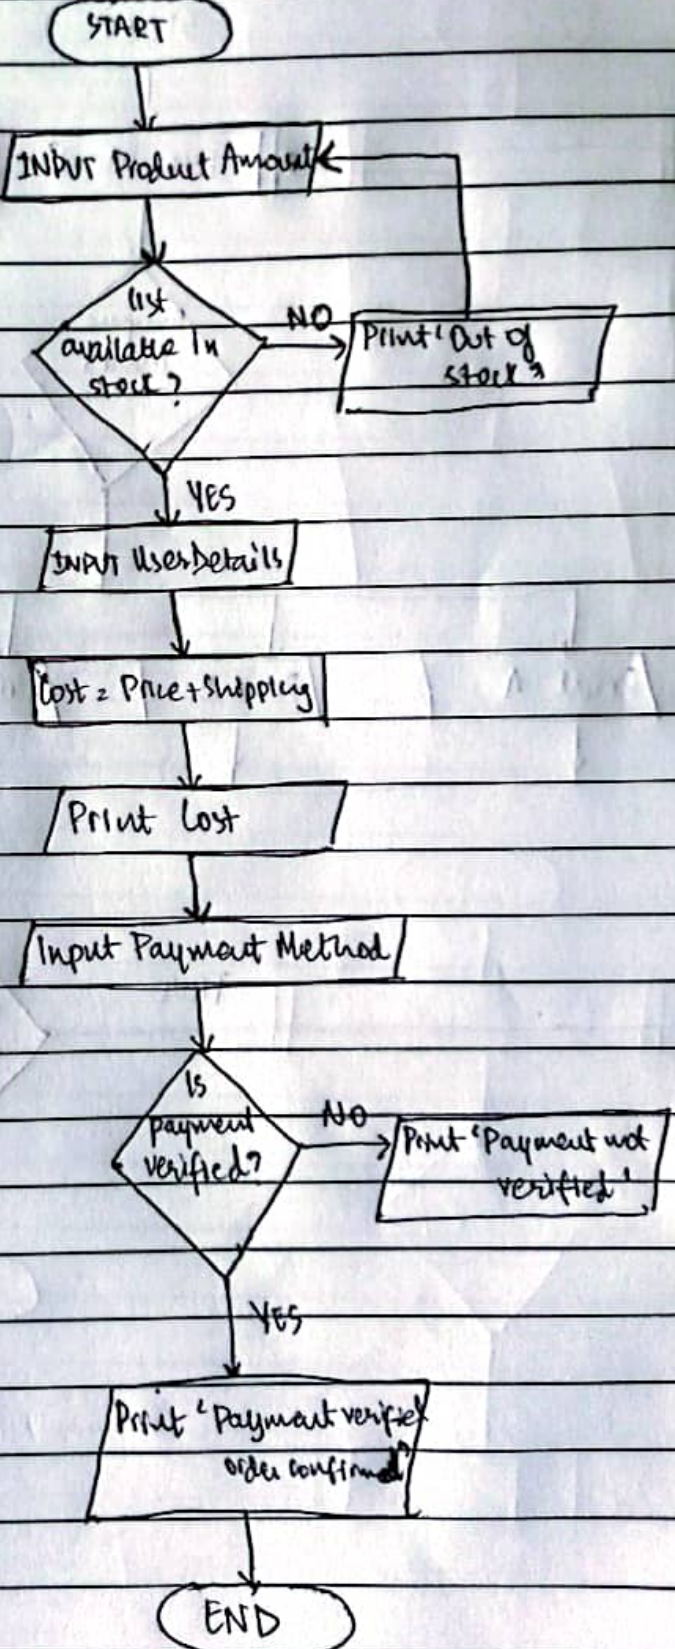 START
INPUT Product Amount
list
available in
stock?
NO
Print 'Out of
stock'
YES
INPUT UserDetails
Cost = Price + Shipping
Print Cost
Input Payment Method
Is
payment
verified?
NO
Print 'Payment not
verified'
YES
Print 'Payment verified
order confirmed'
END